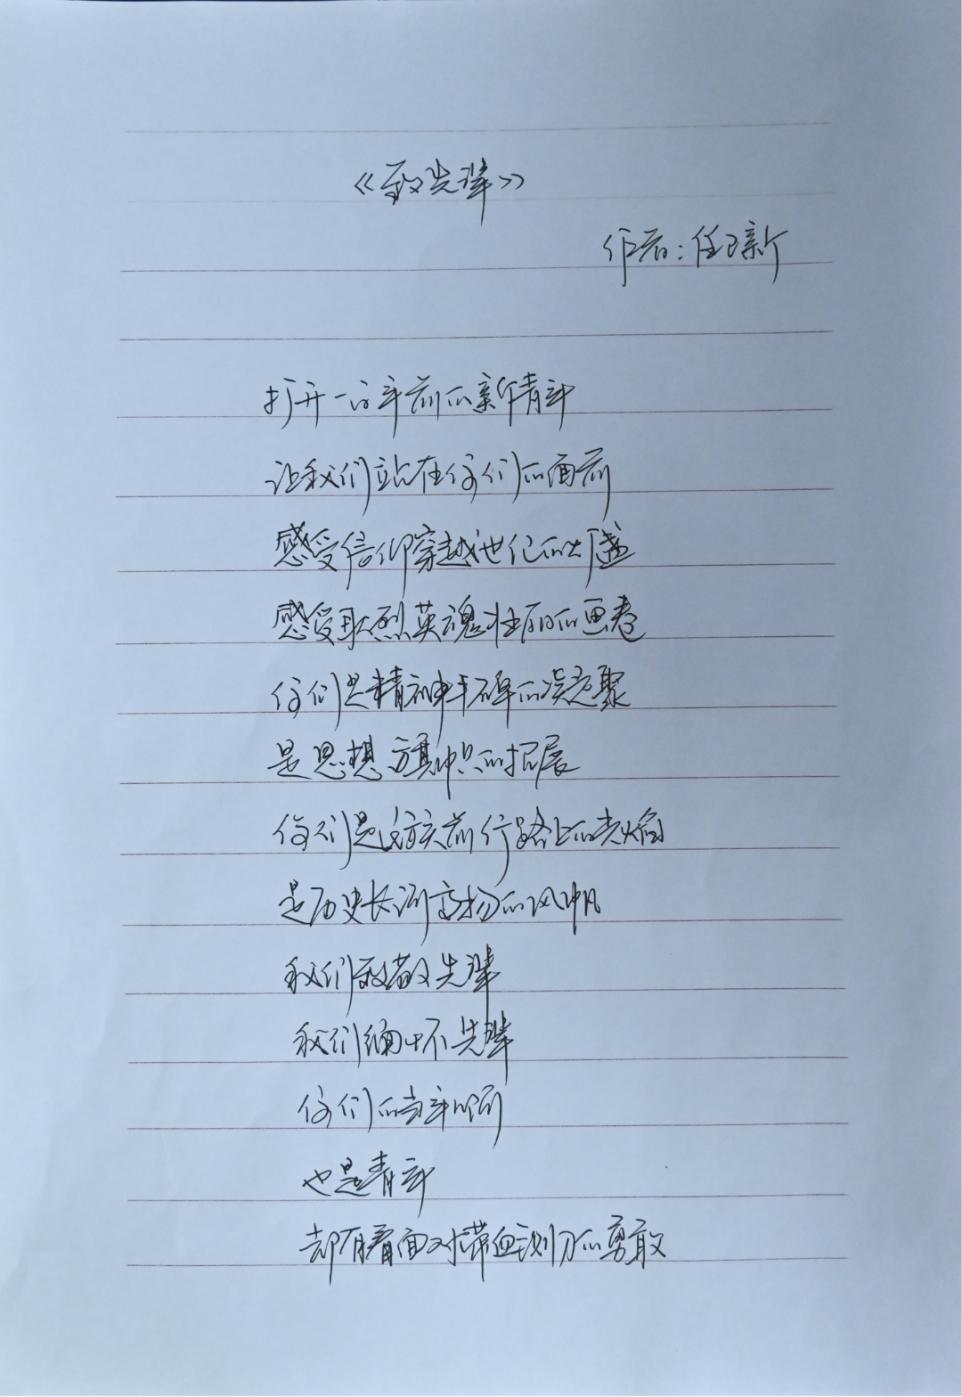 《致先辈》
作者:任卫新
打开一百年前的新青年
让我们站在你们的面前
感受信仰穿越世纪的光芒
感受耿烈英魂壮丽的画卷
你们是精神丰碑的凝聚
是思想旗帜的招展
你们是暗夜前行路上的光焰
是历史长河高扬的风帆
我们致敬先辈
我们缅怀先辈
你们的当年啊
也是青年
却有着面对带血铡刀的勇敢